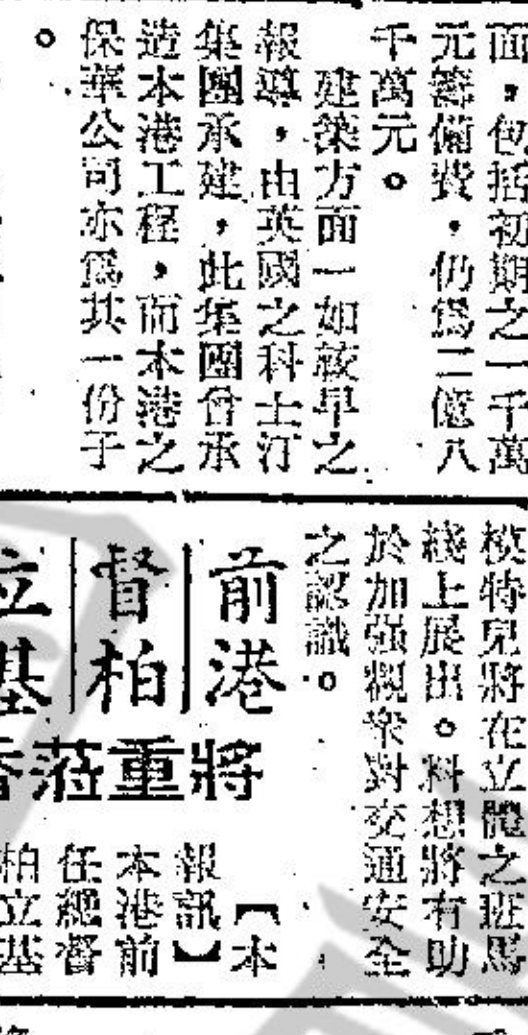 面，包括初期之一千萬
元籌備費，仍為二億八
千萬元。
建築方面一如較早之
報導，由英國之科士汀
集團承建，此集團曾承
造本港工程，而本港之
保華公司亦為其一份子
。
模特兒將在立體之班馬
綫上展出。料想將有助
於加强觀衆對交通安全
之認識。
前港
督柏
立基
將重蒞香
【本
報訊】
本港前
任總督
柏立基